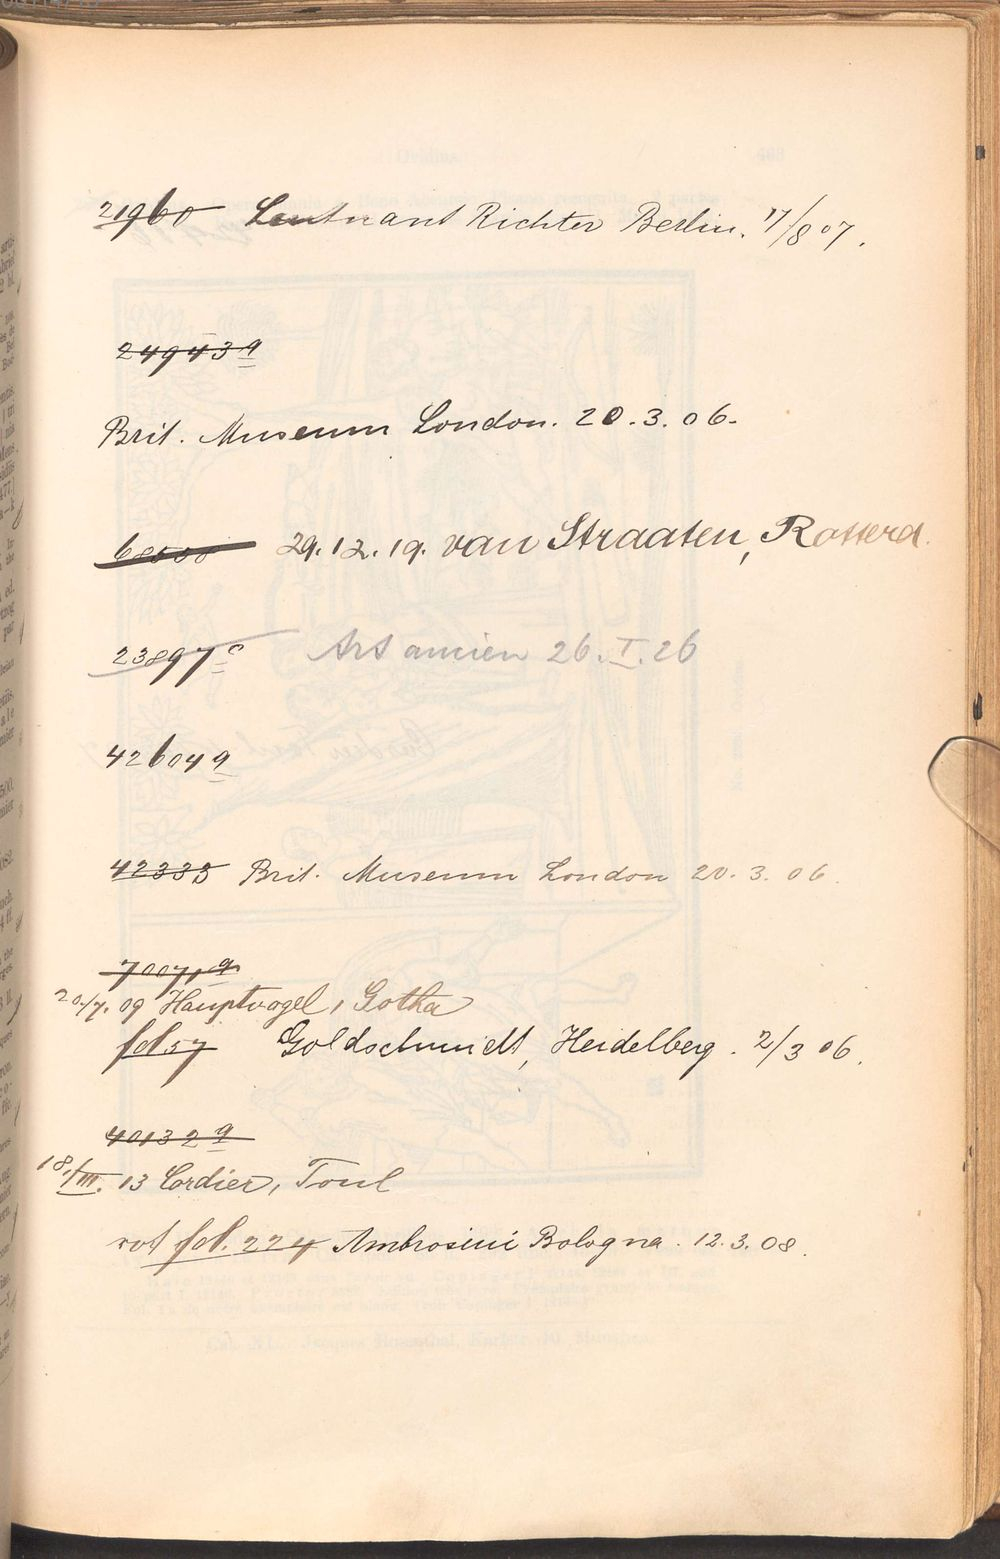 21960 Leutnant Richter Berlin. 17/8 07.
24943a
Brit. Museum London. 20.3.06.
29.12.19. van Straaten, Rotterd.
23897c Art ancien 26.I.26
42604a
42335 Brit. Museum London 20.3.06.
70071a
20./7. 09 Hauptvogel, Gotha
fol. 57 Goldschmidt, Heidelberg. 2/3 06.
40132a
18./III. 13 Cordier, Toul
rot fol. 224 Ambrosini Bologna. 12.3.08.